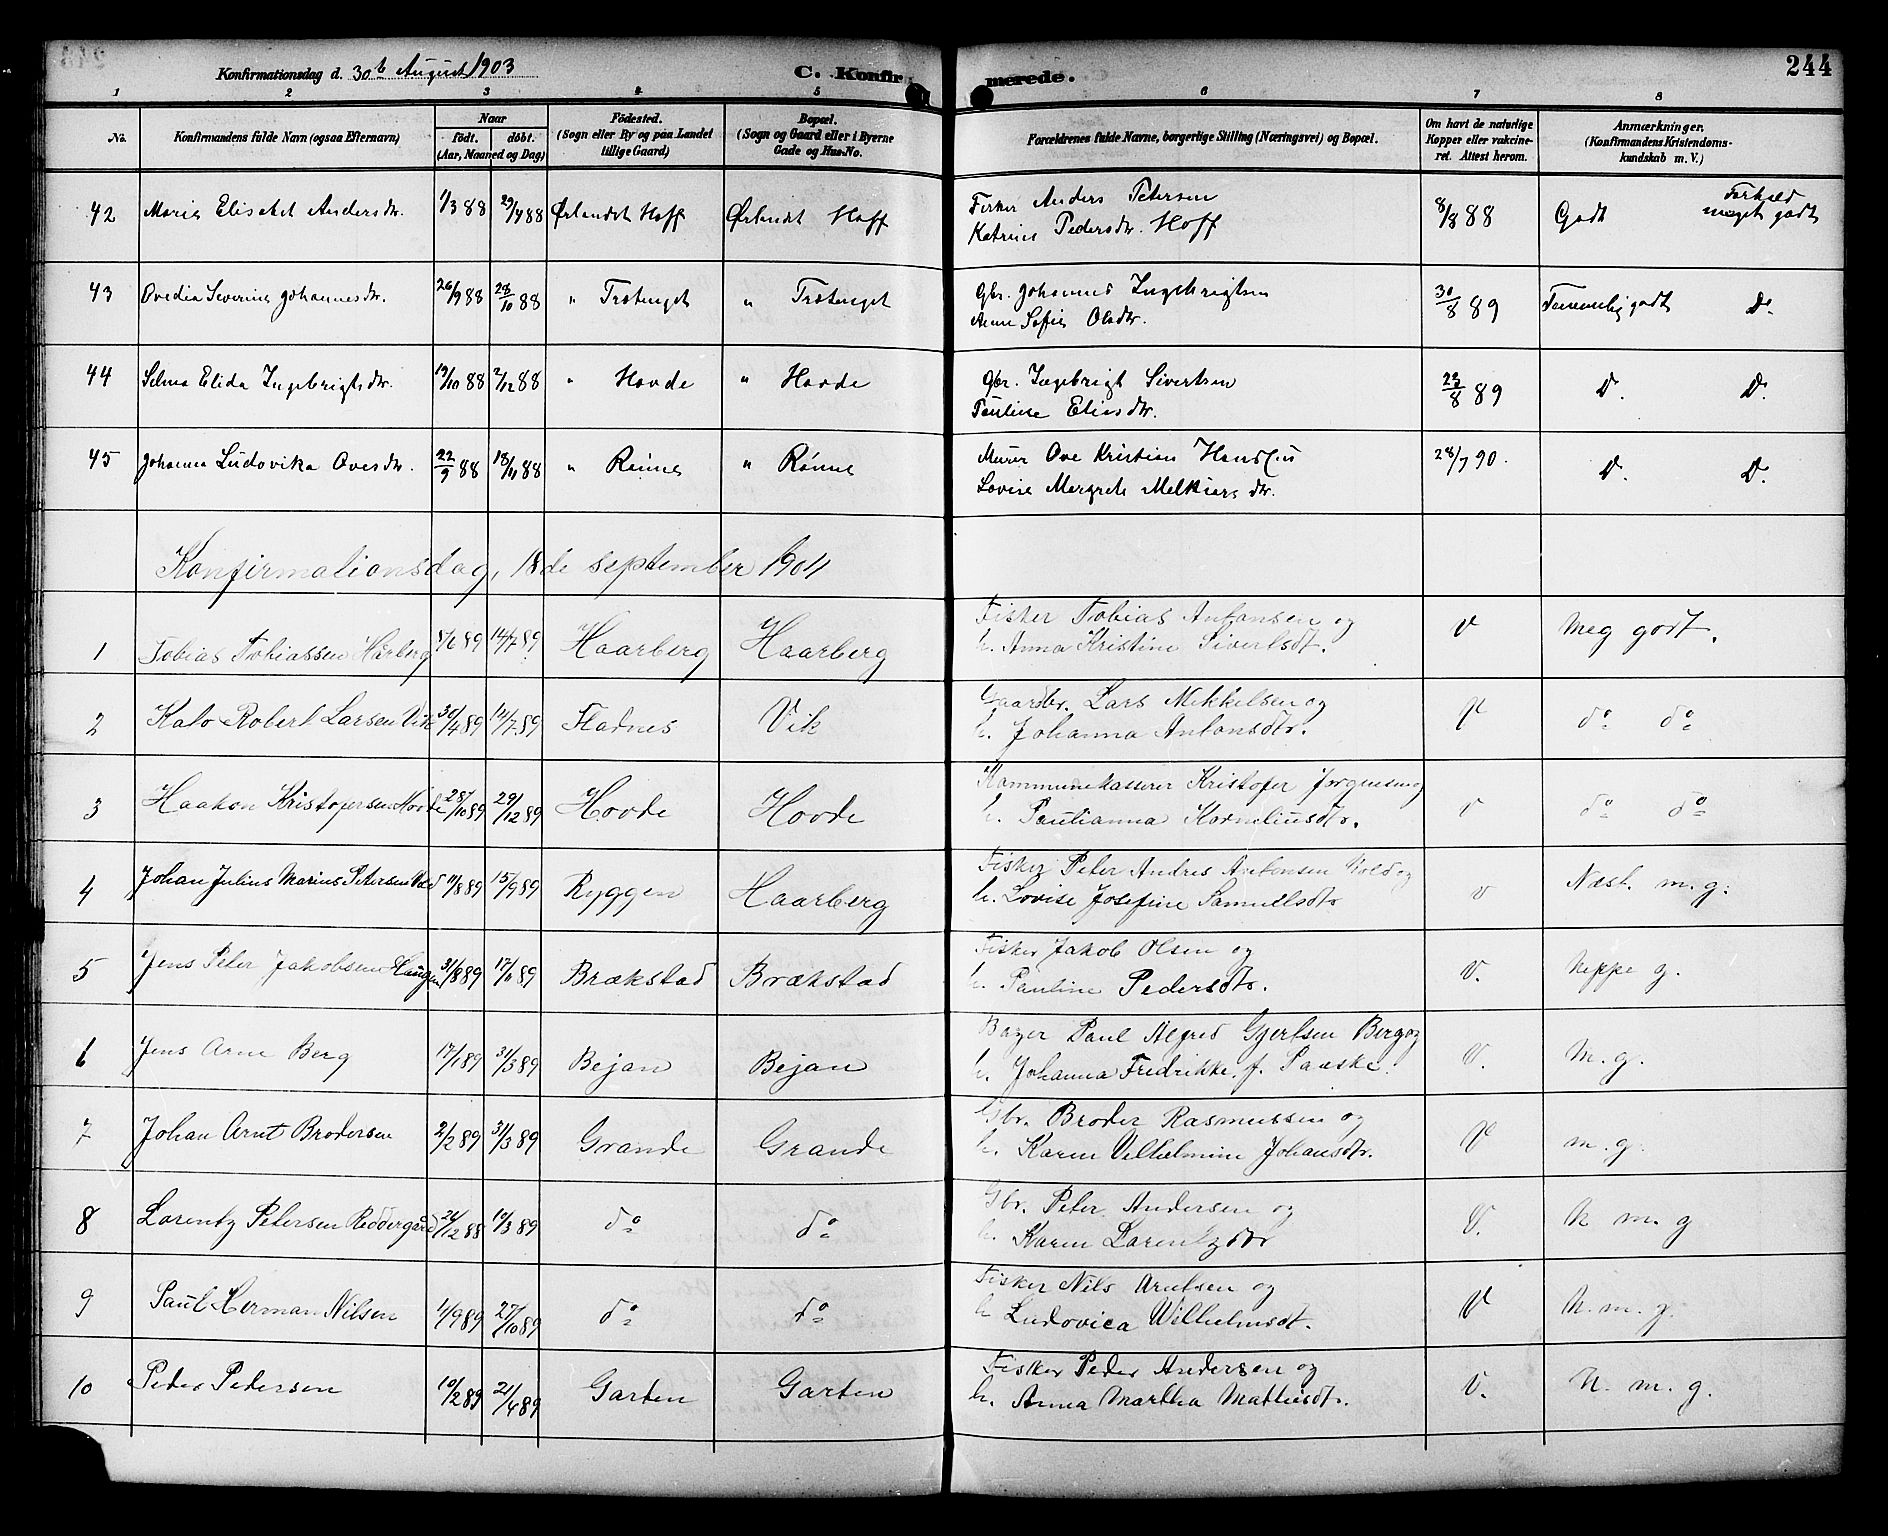 Konfirmationsdag d. 30te August 1903 C. Konfirmerede. 244
1 2 3 4 5 6 7 8
No. Konfirmandens fulde Navn (ogsaa Efternavn) Naar født. døbt. (Aar, Maaned og Dag) Fødested. (Sogn eller By og paa Landet tillige Gaard) Bopæl. (Sogn og Gaard eller i Byerne Gade og Hus-No. Forældrenes fulde Navne, borgerlige Stilling (Næringsvei) og Bopæl. Om havt de naturlige Kopper eller vakcineret. Attest herom. Anmærkninger. (Konfirmandens Kristendomskundskab m. V.)
42 Marie Elisabet Andersdtr. 1/3 88 29/4 88 Ørlandet Hoff Ørlandet Hoff Fisker Anders Petersen 8/8 88 Godt Forhold meget godt
Katrine Pedersdtr. Hoff
43 Ovedia Severine Johannesdtr. 26/9 88 28/10 88 " Trætenget " Trætenget Gbr. Johannes Ingebrigtsen 30/8 89 Temmelig godt Do.
Anne Sofie Olsdtr.
44 Selma Elida Ingebrigtsdtr. 19/10 88 2/12 88 " Hovde " Hovde Gbr. Ingebrigt Sivertsen 22/8 89 Do. Do.
Pauline Eliasdtr.
45 Johanna Ludovika Ovesdtr. 22/9 88 18/11 88 " Rønne " Rønne Murer Ove Kristian 28/7 90. Do. Do.
Lovise Margrete Melkiors dtr.
Konfirmationsdag, 18de september 1904
1 Tobias Tobiassen Harberg /6 89 14/7 89 Haarberg Haarberg Fisker Tobias Antonsen og v Meg godt.
h. Anna Kristine Sivertsdt.
2 Kalo Robert Larsen Vik 30/4 89 14/7 89 Fladnes Vik Gaardbr. Lars Mikkelsen og v do do
h. Johanna Antonsdtr.
3 Haakon Kristofersen Hovde 28/10 89 29/12 89 Hovde Hovde Kommunekasserer Kristofer Jørgensen og v do do
h. Paulianna Korneliusdtr.
4 Johan Julius Marius Petersen 11/8 89 15/9 89 Ryggen Haarberg Fisker Peter Andres Antonsen og v Næst. m. g.
h. Lovise Josefine Samuelsdtr
5 Jens Peter Jakobsen Haugen 31/8 89 /10 89 Brækstad Brækstad Fisker Jakob Olsen og v. neppe g.
h. Pauline Pedersdtr.
6 Jens Arne Berg 17/1 89 31/3 89 Bejan Bejan Bager Paul Alfred Gjertsen Berg og v. M. g.
h. Johanna Fredrikke f. Pauske.
7 Johan Arnt Brodersen 2/2 89 31/3 89 Grande Grande Gbr. Broder Rasmussen og v m. g.
h. Karen Vilhelmine Johansdtr.
8 Lorentz Petersen Reddergård 26/12 88 10/3 89 do do Gbr. Peter Andersen og v. N m. g
h. Karen Lorentzdtr
9 Paul Herman Nilsen 1/9 89 27/10 89 do do Fisker Nils Arntsen og v N. m. g.
h Ludovica Wilhelmsdt.
10 Peder Pedersen 10/2 89 21/4 89 Garten Garten Fisker Peder Andersen og v. N. m. g.
h. Anna Martha Mathisdtr.